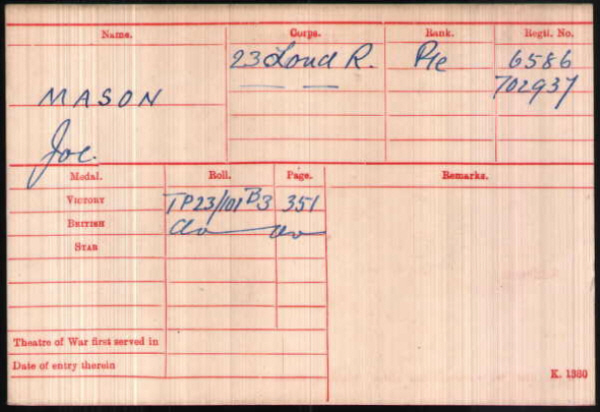 Name. Corps. Rank. Regtl. No.
23 Lond R. Pte 6586
702937
MASON
Joe.
Medal. Roll. Page. Remarks.
VICTORY TP23/101 B3 351
BRITISH do do
STAR
Theatre of War first served in
Date of entry therein
K. 1380